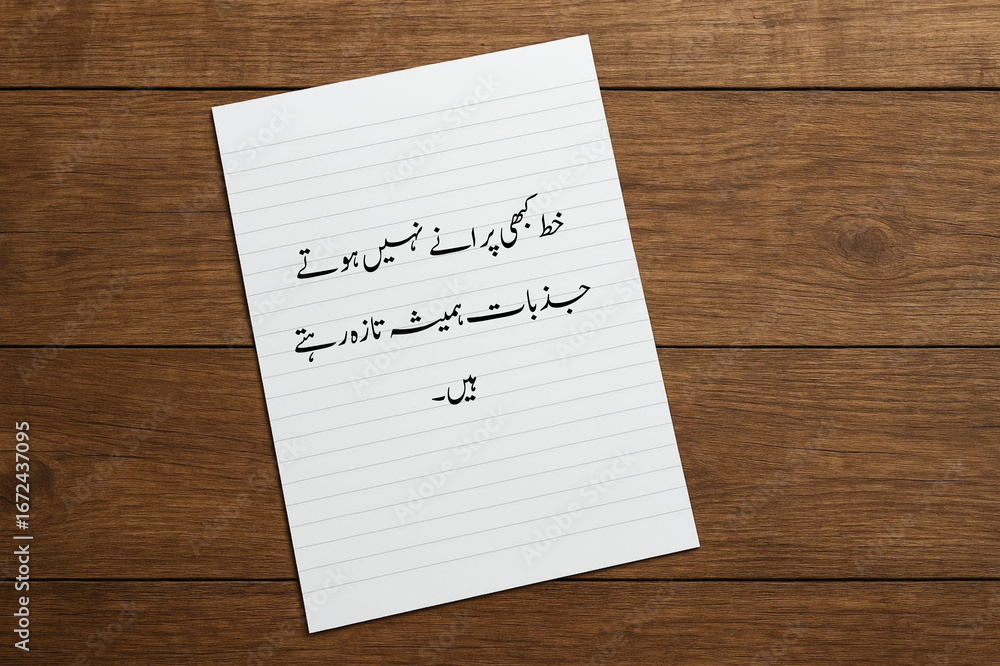 خط کبھی پرانے نہیں ہوتے
جذبات ہمیشہ تازہ رہتے
ہیں۔
Adobe Stock | #1672437095